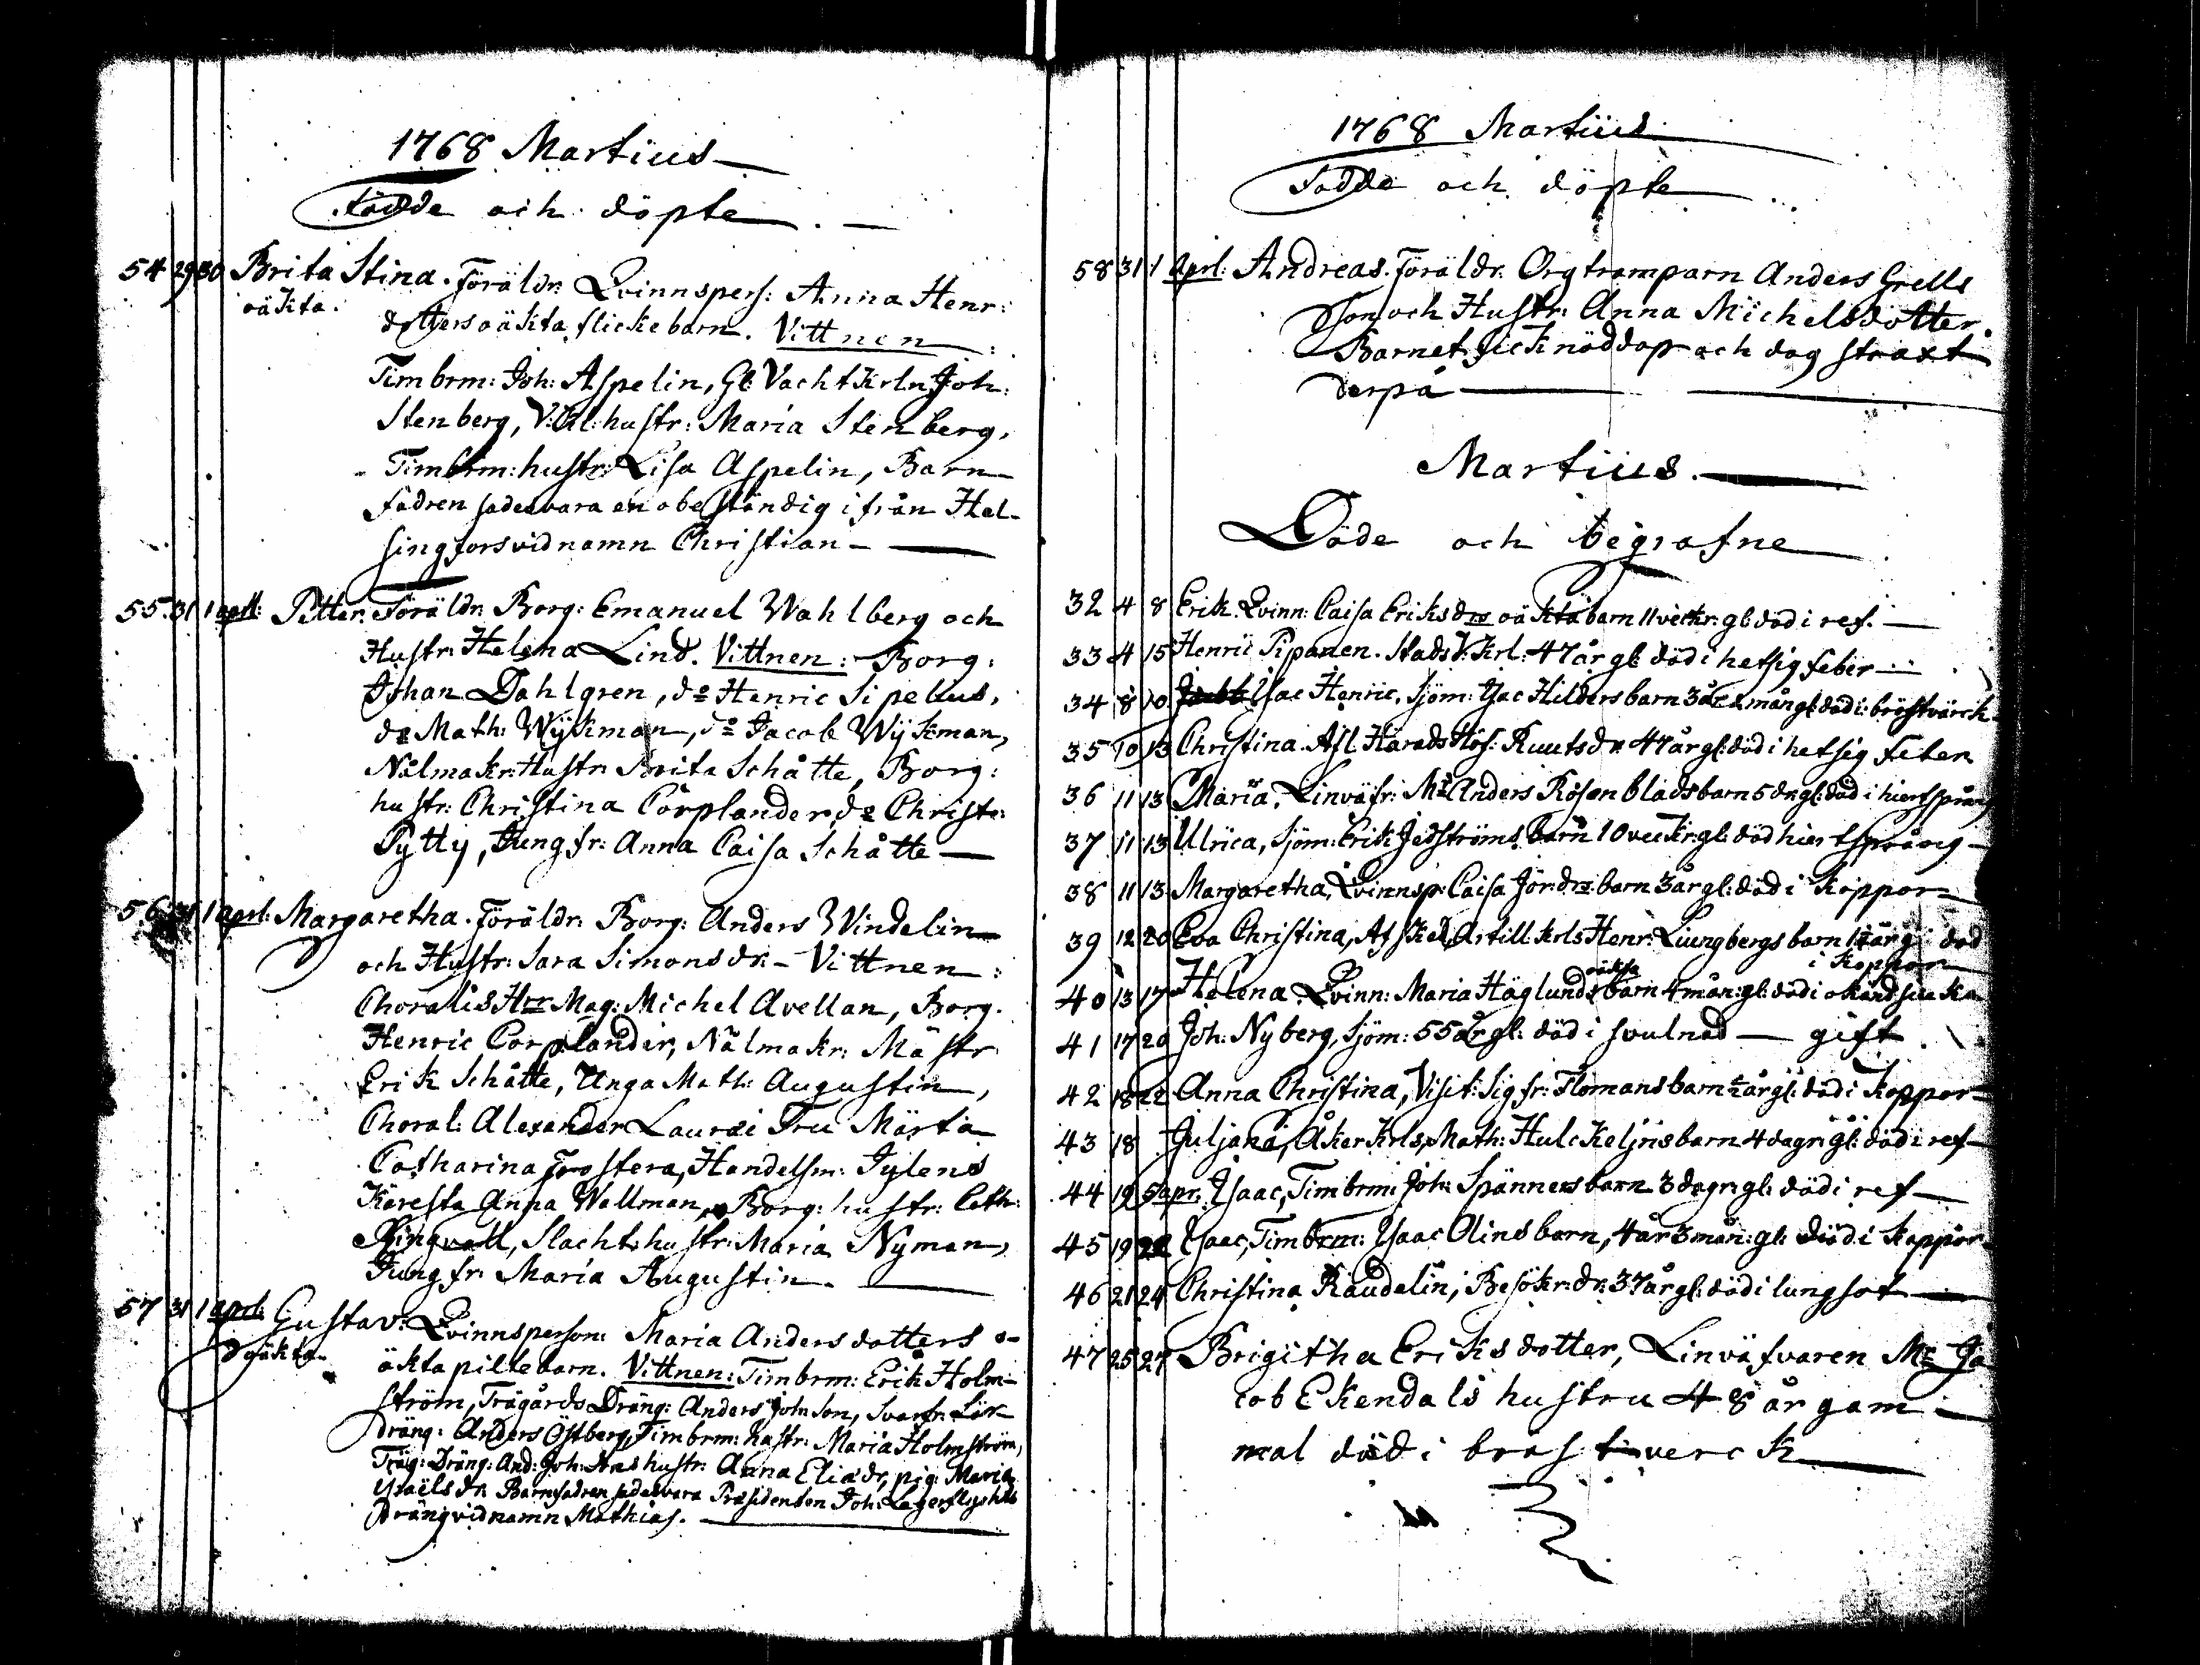 1768 Martius
födde och döpte
54 29 30 Brita Stina. Föräldr: Qvinnspers: Anna Henr:
oäkta. dotters oäkta flickebarn. Vittnen:
Timbrm: Joh: Aspelin, Gl: Vachtkrln Joh:
Stenberg, V:kl: hustr: Maria Stenberg,
Timbrm: hustr: Lisa Aspelin, Barn
fadren sades vara en obeständig ifrån Hel-
singfors vid namn Christian
55. 31 1 aprl: Petter. Föräldr: Borg: Emanuel Wahlberg och
Hustr: Helena Lind. Vittnen: Borg:
Johan Dahlgren, do Henric Sipelius,
do Math: Wijkman, do Jacob Wijkman,
Nålmakr: Hustr: Brita Schåtte, Borg:
hustr: Christina Corplander do Christ:
Pytty, Jungfr: Anna Caisa Schåtte
56 31 1 aprl: Margaretha. Föräldr: Borg: Anders Windelin
och Hustr: Sara Simonsdr: Vittnen:
Choralis Hrr Mag: Michel Avellan, Borg.
Henric Corplander, Nålmakr: Mästr
Erik Schåtte, Unga Math: Augustin,
Choral: Alexander Lauræi Fru Märta
Catharina Frostera, Handelsm: Jylens
Käresta Anna Wallman, Borg: hustr: Cath:
Ringvall, Slacht: hustr: Maria Nyman,
Jungfr: Maria Augustin.
57 31 1 aprl: Gustav: Qvinnsperson: Maria Andersdotters o-
oäkta äkta piltebarn. Vittnen: Timbrm: Erik Holm-
ström, Trägårds Dräng: Anders Johnson, Svarfv: Lär
dräng: Anders Östberg, Timbrm: hustr: Maria Holmström,
Träg: Dräng: And: Joh: hustr: Anna Eliædr, pig: Maria
Barnfadren sades vara Præsidenten Joh: Lagerflychts
Dräng vid namn Mathias.
1768 Martius
Födde och döpte
58 31 1 Aprl: Andreas. Föräldr: Orgtramparn Anders Grells
Son och Hustr: Anna Michelsdotter.
Barnet fick nöddop och dog straxt
derpå
Martius.
Döde och begrafne
32 4 8 Erik. Qvinn: Caisa Eriksdrs oäkta barn 11 veckr: gl: död i ref.
33 4 15 Henric Pipanen. Stads V:krl: 47 år gl: död i hetsig feber
34 8 10 Isac Henric, Sjöm: Isac Hilders barn 3 år 2 mån gl: död i bröstvärck
35 10 13 Christina. Afl Härads Höf: Ruutsdr 47 år gl: död i hetsig feber
36 11 13 Maria, Linväfr: Mr Anders Rosenblads barn 5 dr: gl: död i hiertsprång
37 11 13 Ulrica, Sjöm: Erik Jedströms barn 10 veckr: gl: död hiertsprång
38 11 13 Margaretha, Qvinnsp: Caisa Jör:drs: barn 3 år gl: död i koppor
39 12 20 Eva Christina, Afsked, Artill:krls Henr: Liungbergs barn 1 1/2 år gl död
i koppor
40 13 17 Helena. Qvinn: Maria Häglunds oäkta barn 4 mån: gl: död i okänd siuka
41 17 20 Joh: Nyberg, Sjöm: 55 år gl: död i svulnad gift
42 18 22 Anna Christina, Visit: Sigfr: Flomans barn 1/2 år gl: död i koppor
43 18 Juljana, Åkerkrls Math: Hulckeljns barn 4 dagr: gl: död i ref
44 19 5 apr: Isaac, Timbrm: Joh: Spänners barn 3 dagr: gl: död i ref
45 19 22 Isaac, Timbrm: Isaac Olins barn, 4 år 3 mån: gl: död i koppor
46 21 24 Christina Raudelin, Besökr:dr: 37 år gl: död i lungsot
47 25 27 Brigitha Eriksdotter, Linväfvaren Mr Ja
cob Ekendals hustru 48 år gam
mal död i bröstverck